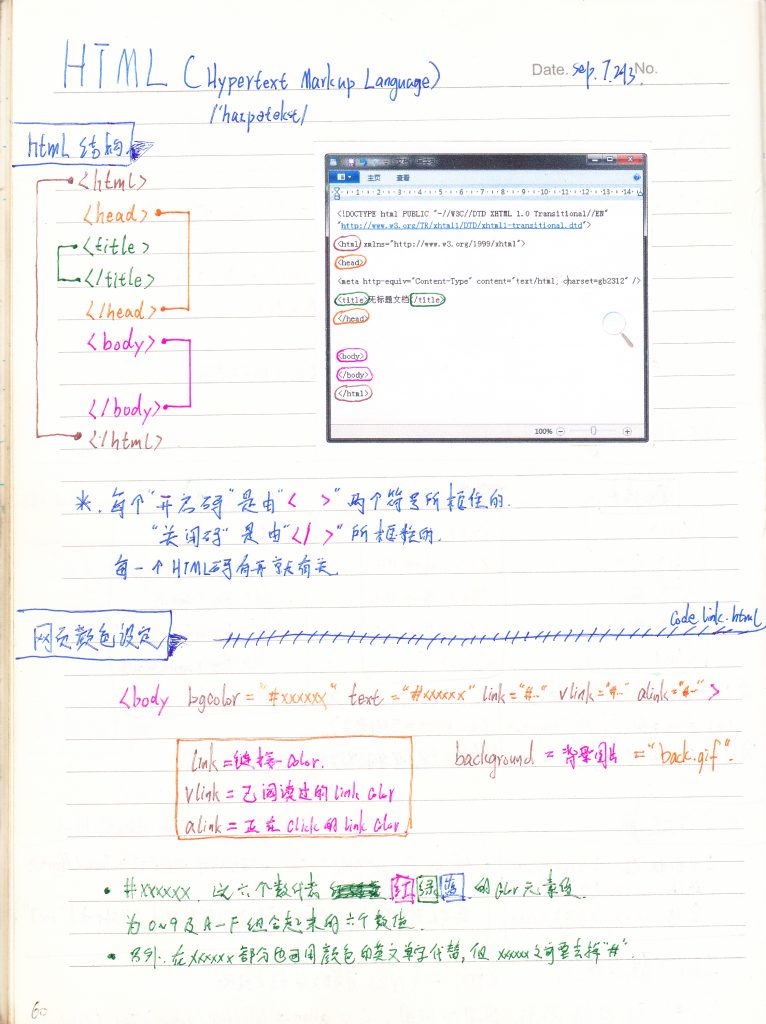 HTML (Hypertext Markup Language)
Date. Sep. 7. 2013 No.
/'haɪpətekst/
html 结构
<html>
<head>
<title>
</title>
</head>
<body>
</body>
</html>
主页 查看
1 2 3 4 5 6 7 8 9 10 11 12 13 14
<!DOCTYPE html PUBLIC "-//W3C//DTD XHTML 1.0 Transitional//EN"
"http://www.w3.org/TR/xhtml1/DTD/xhtml1-transitional.dtd">
<html xmlns="http://www.w3.org/1999/xhtml">
<head>
<meta http-equiv="Content-Type" content="text/html; charset=gb2312" />
<title>无标题文档</title>
</head>
<body>
</body>
</html>
100%
*. 每个"开启码"是由"< >"两个符号所框住的.
"关闭码"是由"</ >"所框起的.
每一个HTML码有开就有关.
网页颜色设定
Code link.html
<body bgcolor="#xxxxxx" text="#xxxxxx" link="#..." vlink="#..." alink="#...">
link=链接color.
vlink=已阅读过的link color
alink=正在click的link color
background = 背景图片 = "back.gif".
• #xxxxxx. 这六个数代表 红 绿 蓝 的color元素值.
为0~9及A-F组合起来的六个数值.
• 另外:在xxxxxx部分也可用颜色的英文单字代替,但xxxxxx之前要去掉"#".
60